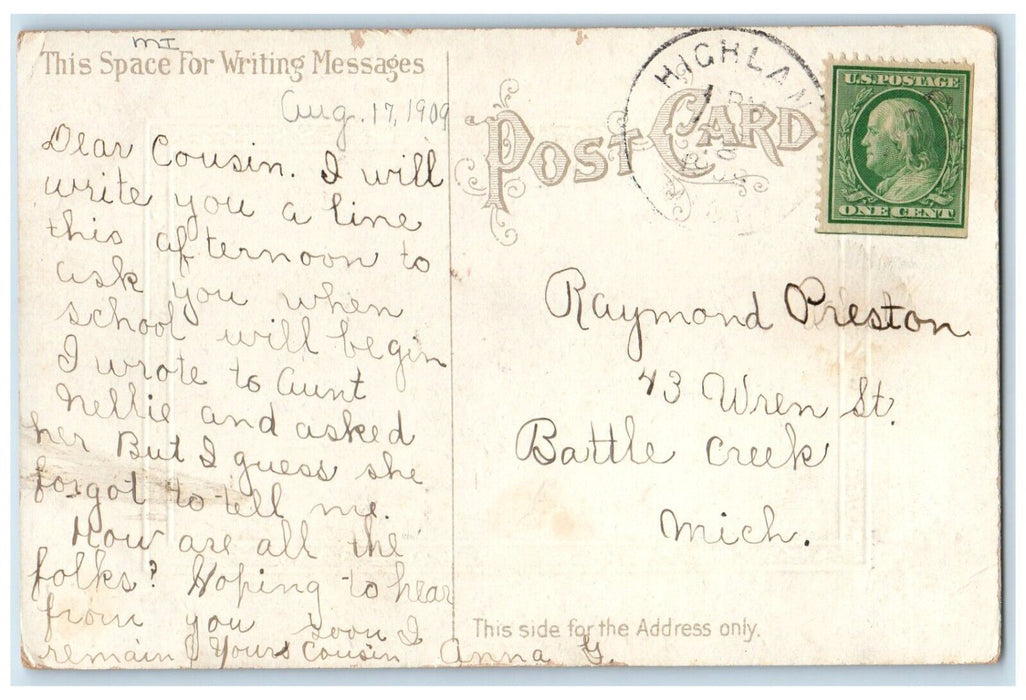 MI
This Space For Writing Messages
Aug. 17, 1909
Dear Cousin. I will
write you a line
this afternoon to
ask you when
school will begin
I wrote to Aunt
Nellie and asked
her But I guess she
forgot to tell me.
How are all the
folks? Hoping to hear
from you soon I
remain Yours Cousin Anna G.
POST CARD
HIGHLAN
U.S. POSTAGE
ONE CENT
Raymond Preston
43 Wren St.
Battle Creek
Mich.
This side for the Address only.